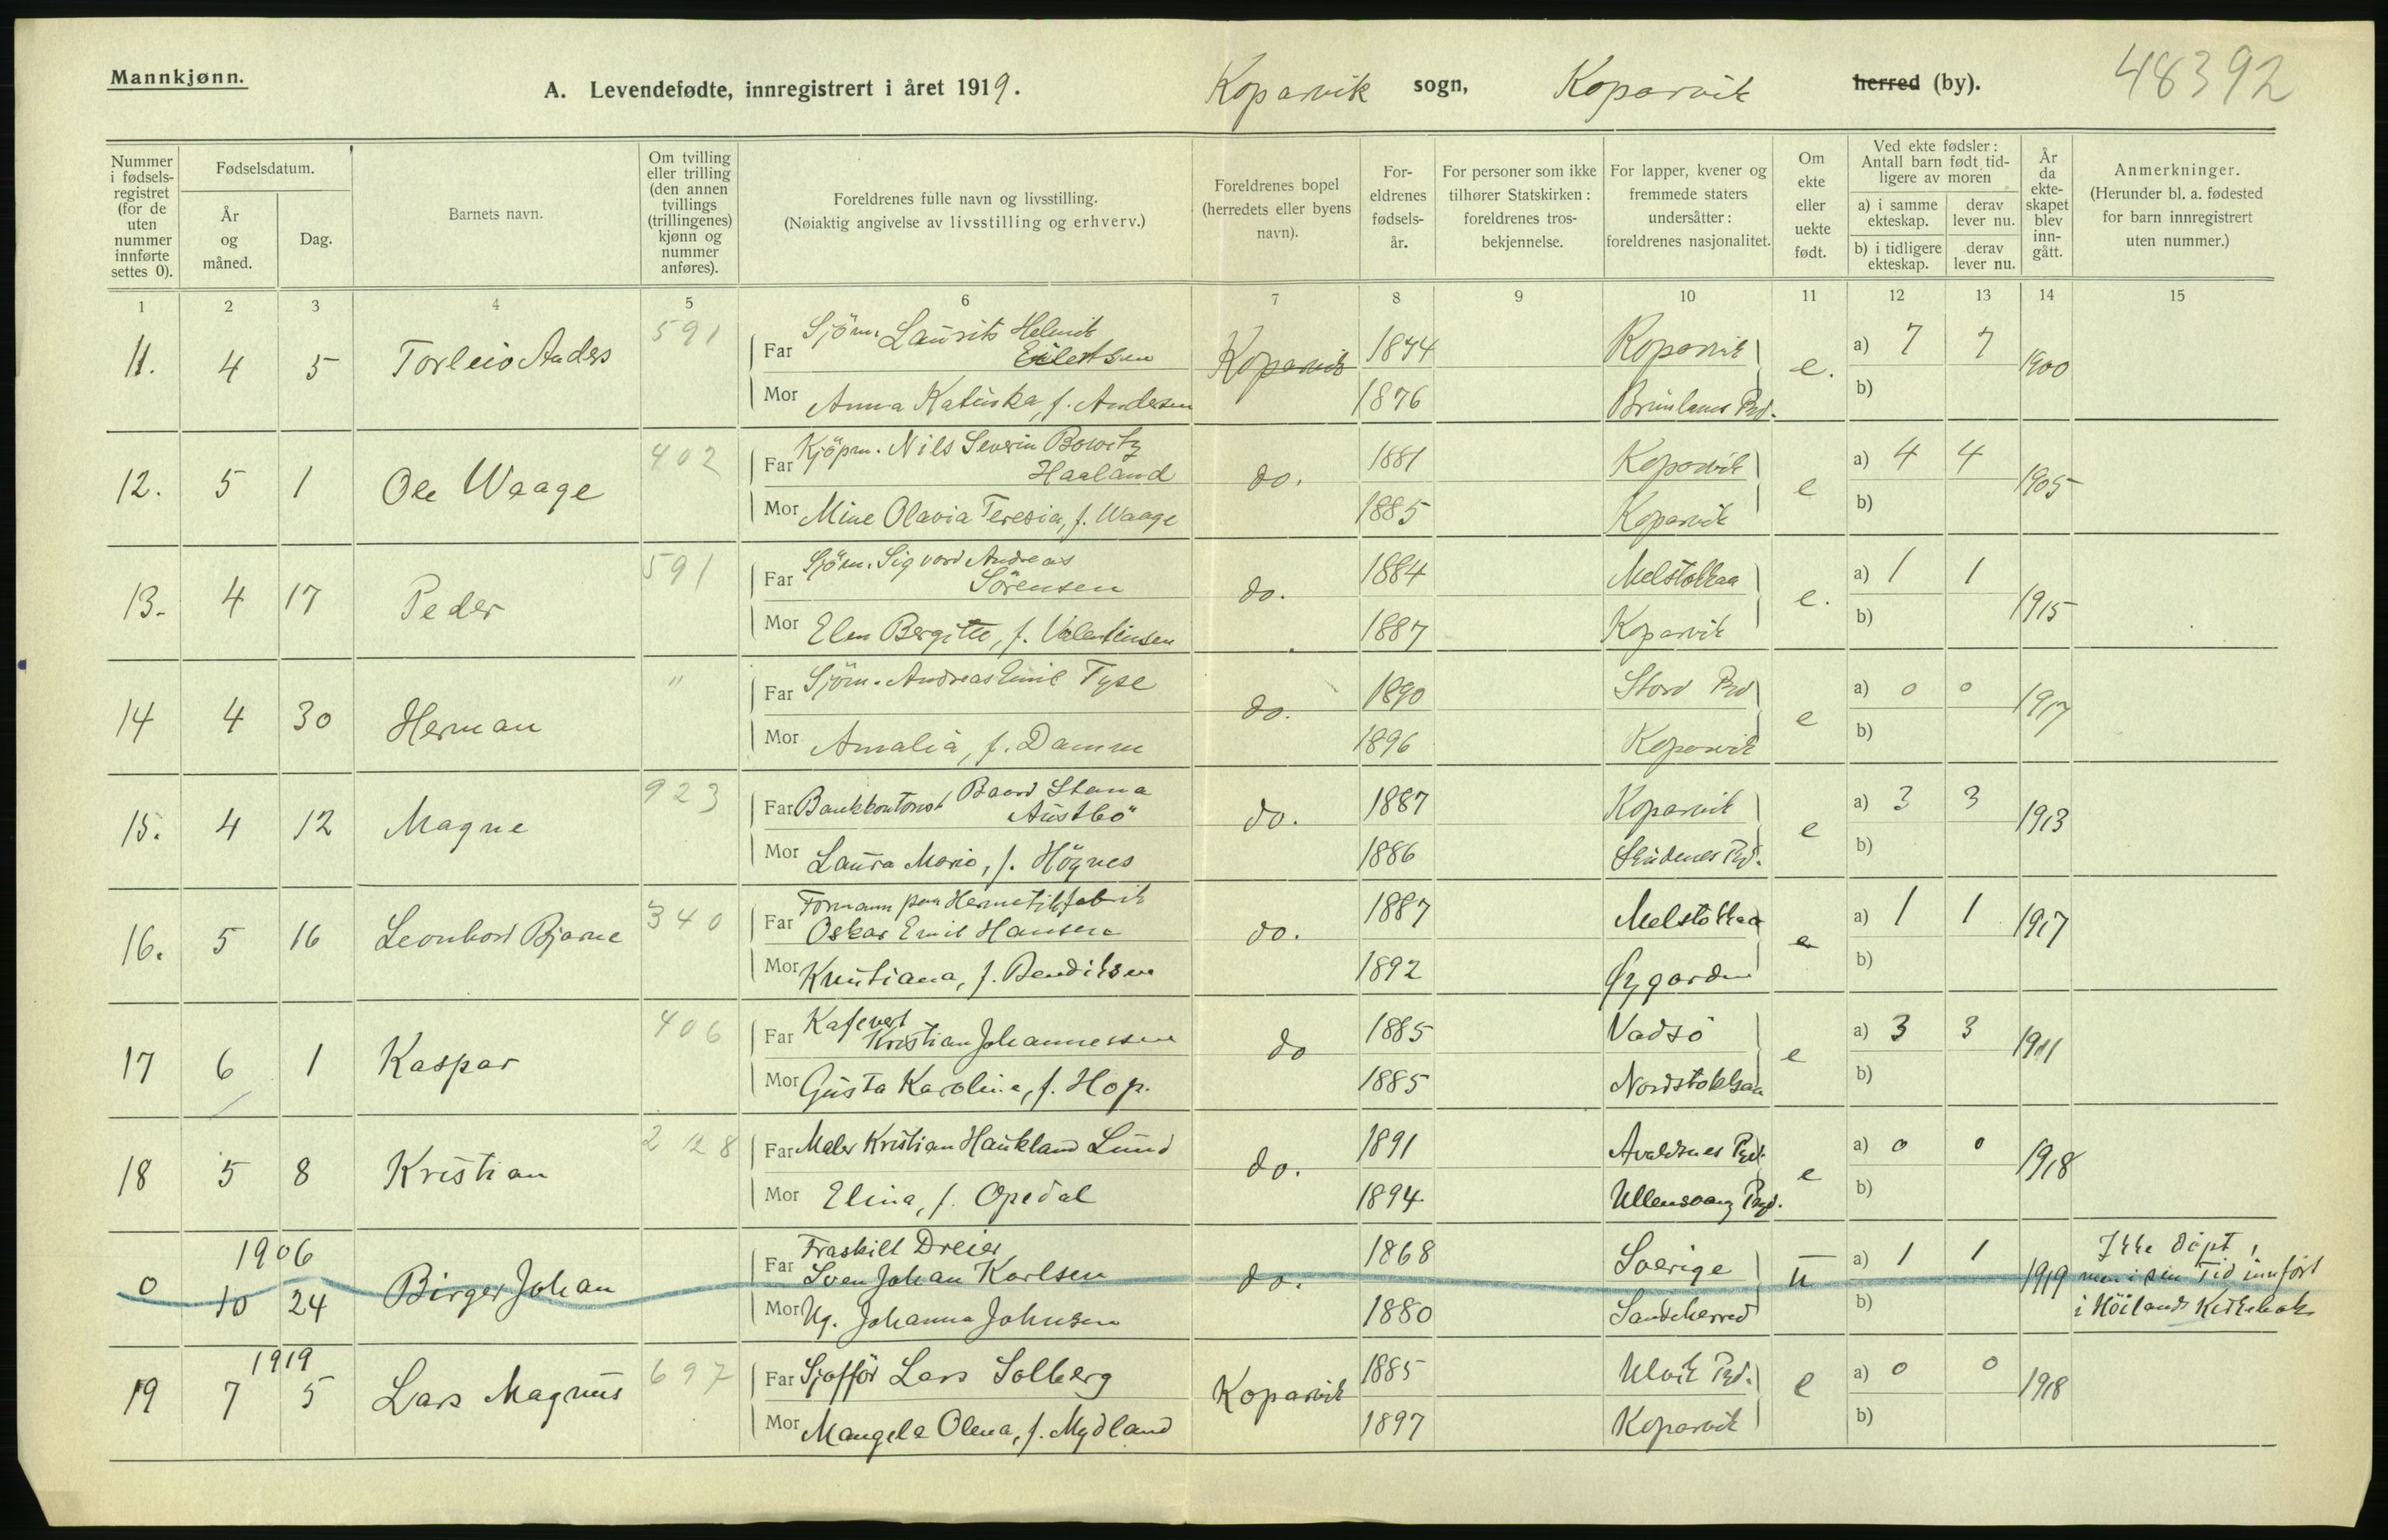 Mannkjønn.
A. Levendefødte, innregistrert i året 1919. Koparvik sogn, Koparvik herred (by). 48392
Nummer i fødsels-registret (for de uten nummer innførte settes 0).
Fødselsdatum.
År og måned.
Dag.
Barnets navn.
Om tvilling eller trilling (den annen tvillings (trillingenes) kjønn og nummer anføres).
Foreldrenes fulle navn og livsstilling.
(Nøiaktig angivelse av livsstilling og erhverv.)
Foreldrenes bopel (herredets eller byens navn).
For-eldrenes fødsels-år.
For personer som ikke tilhører Statskirken: foreldrenes tros-bekjennelse.
For lapper, kvener og fremmede staters undersåtter: foreldrenes nasjonalitet.
Om ekte eller uekte født.
Ved ekte fødsler: Antall barn født tid-ligere av moren
a) i samme ekteskap.
derav lever nu.
b) i tidligere ekteskap.
derav lever nu.
År da ekte-skapet blev inn-gått.
Anmerkninger.
(Herunder bl. a. fødested for barn innregistrert uten nummer.)
1 2 3 4 5 6 7 8 9 10 11 12 13 14 15
11. 4 5 Torleiv Anders 591 Far Sjöm. Laurits Helmik Eilertsen Koparvik 1874 Koparvik e. a) 7 7 1900
Mor Anna Katinka, f. Andersen 1876 Brunlanes Prd. b)
12. 5 1 Ole Waage 402 Far Kjöpm. Nils Severin Bowitz Haaland do. 1881 Koparvik e a) 4 4 1905
Mor Mine Olavia Teresia, f. Waage 1885 Koparvik b)
13. 4 17 Peder 591 Far Sjöm. Sigvard Andreas Sörensen do. 1884 Melstokkaa e. a) 1 1 1915
Mor Elen Bergitte, f. Valentinsen 1887 Koparvik b)
14 4 30 Herman " Far Sjöm. Andreas Emil Tyse do. 1890 Stord Prd e a) 0 0 1917
Mor Amalia, f. Damm 1896 Koparvik b)
15. 4 12 Magne 923 Far Bankkontorist Baard Stana Austbö do. 1887 Koparvik e a) 3 3 1913
Mor Laura Marie, f. Högnes 1886 Skudenes Prd. b)
16. 5 16 Leonhard Bjarne 340 Far Formann paa Hermetikfabrik Oskar Emil Hansen do. 1887 Melstokkaa e a) 1 1 1917
Mor Kristiana, f. Bendiksen 1892 Øygarden b)
17 6 1 Kaspar 406 Far Kafevert Kristian Johannessen do 1885 Vadsö e a) 3 3 1911
Mor Gusta Karoline, f. Hop. 1885 Nordstokkaa b)
18 5 8 Kristian 228 Far Maler Kristian Haukland Lund do. 1891 Avaldsnes Prd. e a) 0 0 1918
Mor Elina, f. Opedal 1894 Ullensvang Prd. b)
0 1906 10 24 Birger Johan Far Fraskilt Dreier Sven Johan Karlsen do. 1868 Sverige u a) 1 1 1919 Ikke döpt, men i sin Tid innført i Höilands Kirkebok
Mor Ug. Johanna Johnsen 1880 Sandeherred b)
19 1919 7 5 Lars Magnus 697 Far Sjafför Lars Solberg Koparvik 1885 Ulvik Prd. e a) 0 0 1918
Mor Mangela Olena, f. Mydland 1897 Koparvik b)